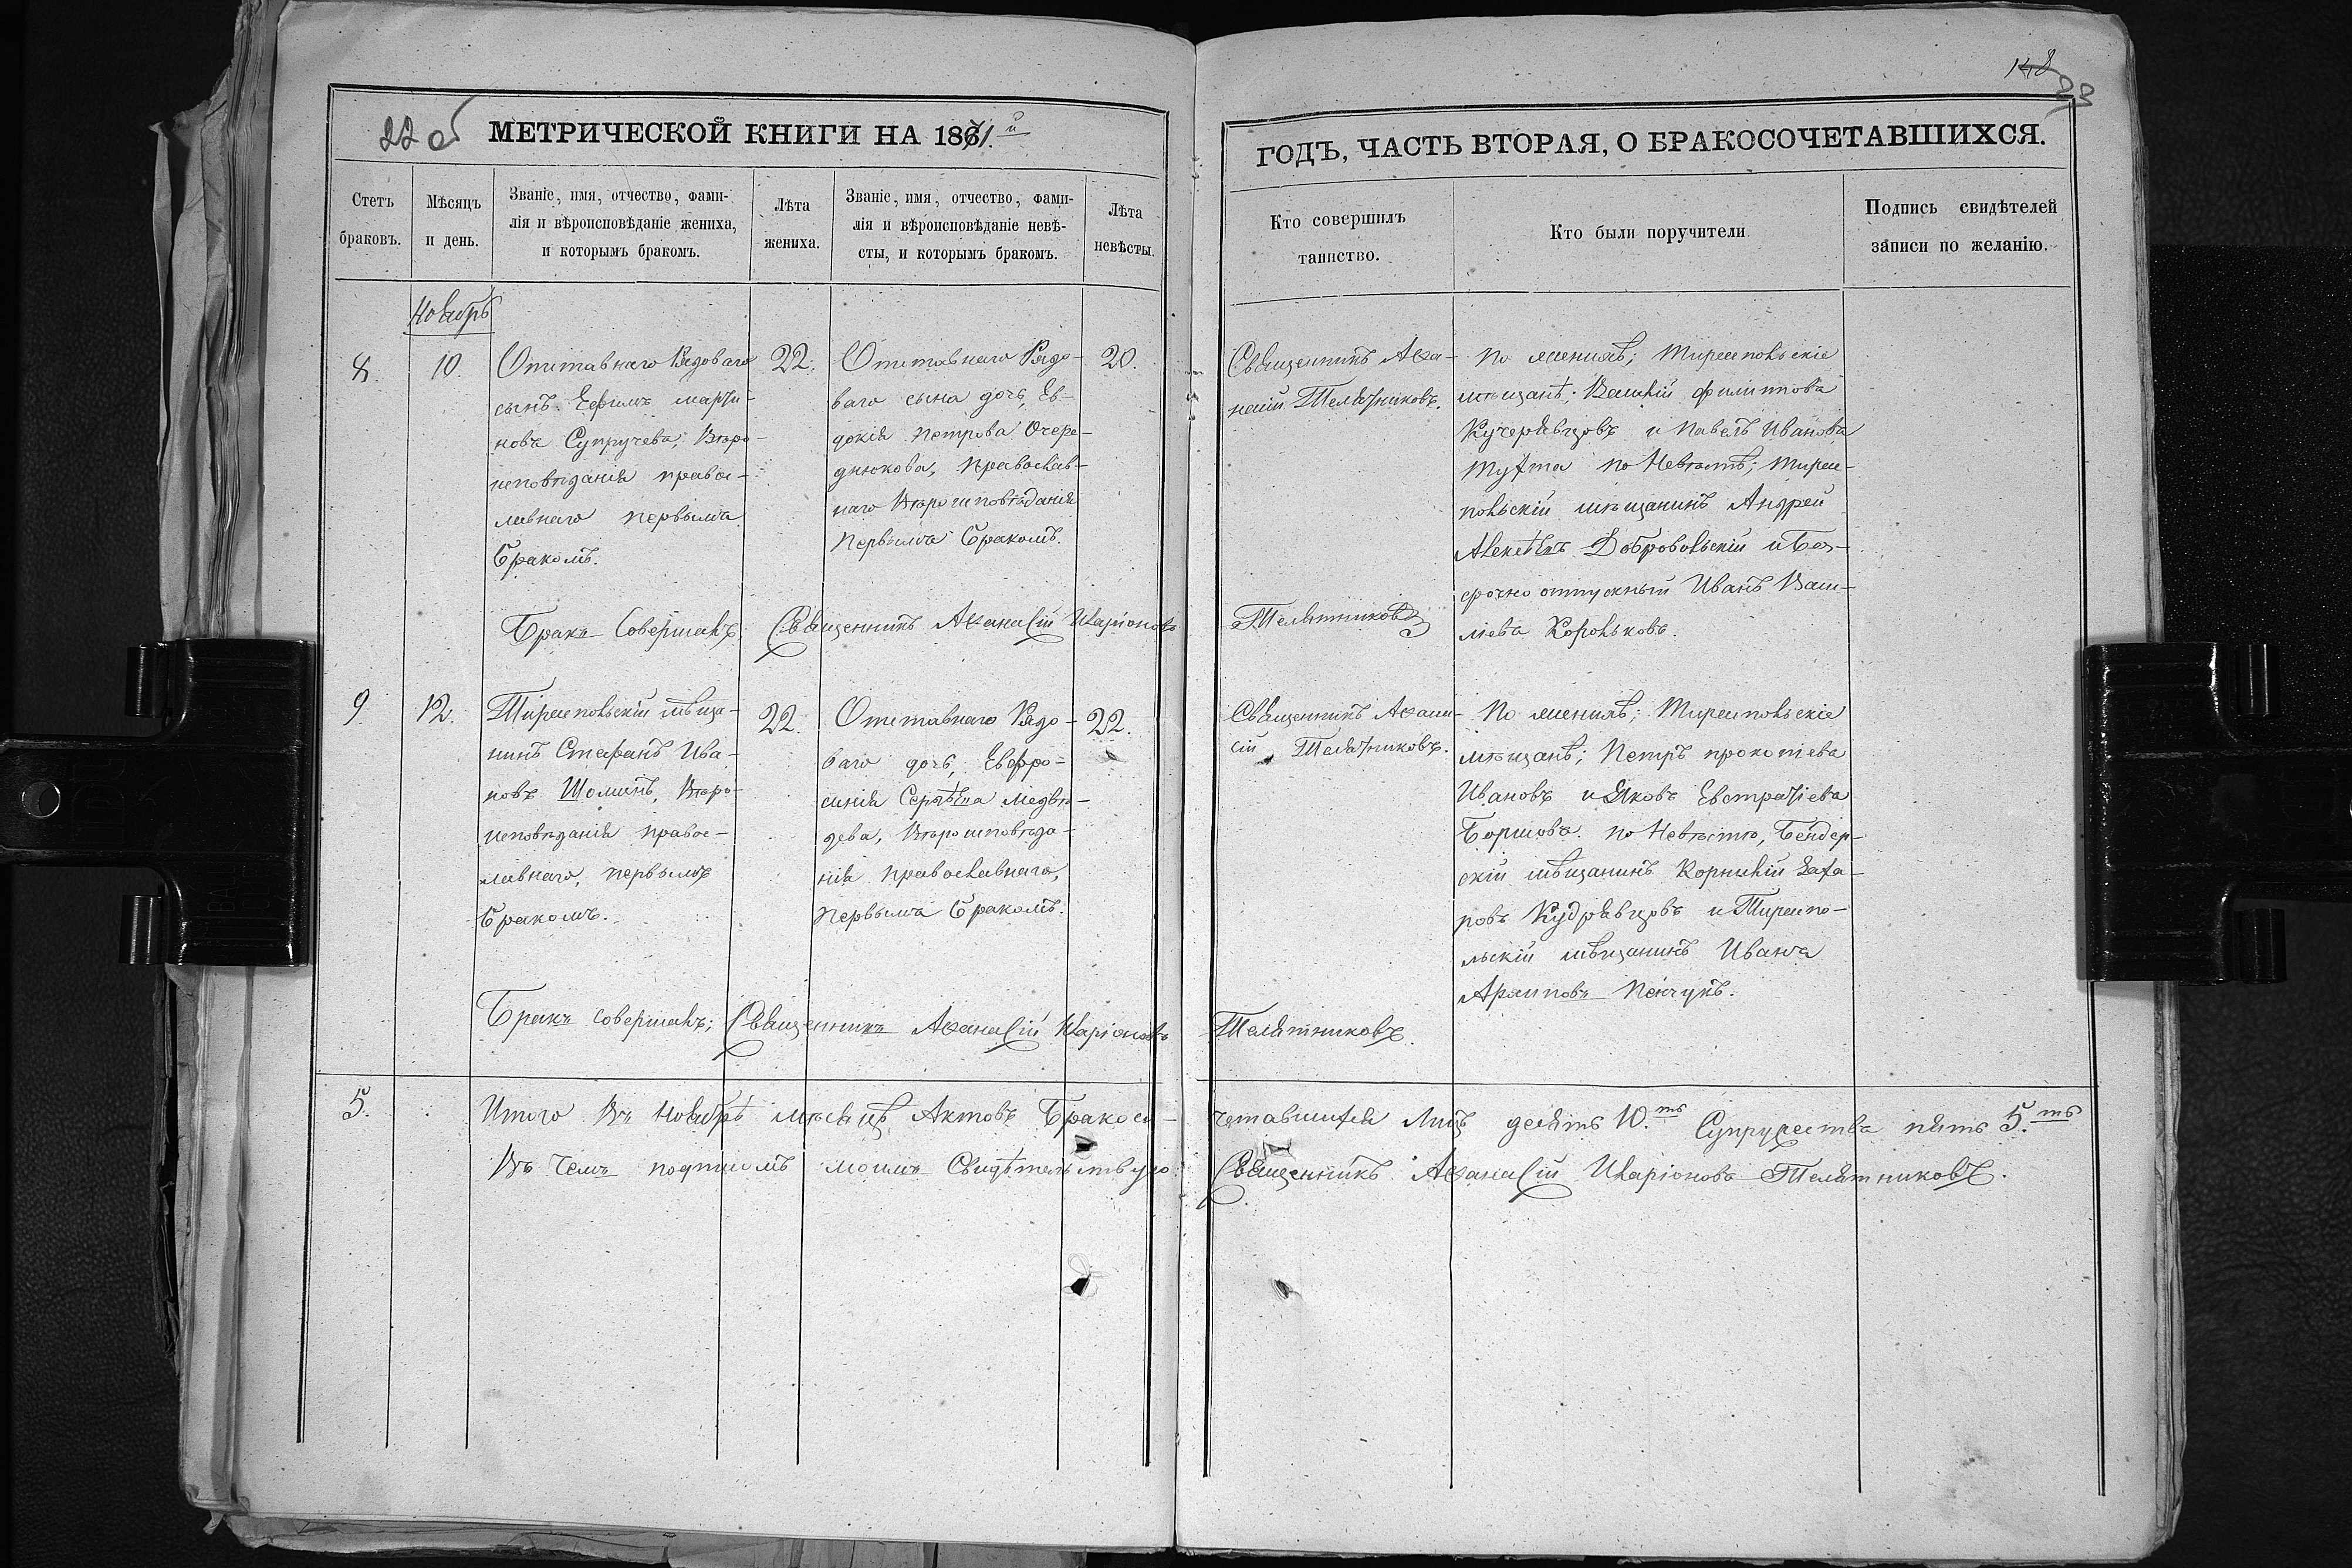 148
93
22 об
МЕТРИЧЕСКОЙ КНИГИ НА 1871й
ГОДЪ, ЧАСТЬ ВТОРАЯ, О БРАКОСОЧЕТАВШИХСЯ.
Счетъ
браковъ.
Мѣсяцъ
и день.
Званіе, имя, отчество, фами-
лія и вѣроисповѣданіе жениха,
и которымъ бракомъ.
Лѣта
жениха.
Званіе, имя, отчество, фами-
лія и вѣроисповѣданіе невѣ-
сты, и которымъ бракомъ.
Лѣта
невѣсты.
Кто совершилъ
таинство.
Кто были поручители
Подпись свидѣтелей
записи по желанію.
Ноябрь
8
10.
Отставнаго Рядоваго
сынъ. Ефимъ марти-
новъ Супручева, Вѣро-
исповѣданія правос-
лавнаго первымъ
бракомъ.
22.
Отставнаго Рядо-
ваго сына дочь, Ев-
докія Петрова Очере-
днюкова, Православ-
наго Вѣроисповѣданія
Первымъ бракомъ.
20.
Священникъ Афа-
насій Телятниковъ.
По женихѣ; Тираспольскіе
мѣщанѣ; Василій филиппова
Кучерявцовъ и Павелъ Иванова
Тухта по Невѣстѣ; тирас-
польскій мѣщанинъ Андрей
Алексѣевъ Добровольскій и Без-
срочно отпускный Иванъ Васи-
ліева Корольковъ.
Бракъ Совершалъ; Священникъ Афанасій Иларіоновъ
Телятниковъ
9
12.
Тираспольскій мѣща-
нинъ Стефанъ Ива-
новъ Шоминъ, Вѣро-
исповѣданія правос-
лавнаго, первымъ
бракомъ.
22.
Отставнаго Рядо-
ваго дочь, Евфро-
синія Сергѣева медвѣ-
дева, Вѣроисповѣда-
нія православнаго,
первымъ бракомъ.
22.
Священникъ Афана-
сій Телятниковъ.
По женихѣ; Тираспольскіе
мѣщанѣ; Петръ прокопіева
Ивановъ и Яковъ Евстратіева
Боршова. по Невѣстѣ, Бендер-
скій мѣщанинъ Корнилій Заха-
ровъ Кудрявцовъ и Тираспо-
льскій мѣщанинъ Иванъ
Архиповъ
Бракъ совершалъ; Священникъ Афанасій Иларіоновъ
Телятниковъ.
5.
Итого Въ Ноябрѣ мѣсяцѣ Актовъ Бракосо-
четавшихся Лицъ десять 10.ть Супружества пять 5.ть
Въ Чемъ подписомъ моимъ Свидѣтельствую
Священникъ Афанасій Иларіонова Телятниковъ.